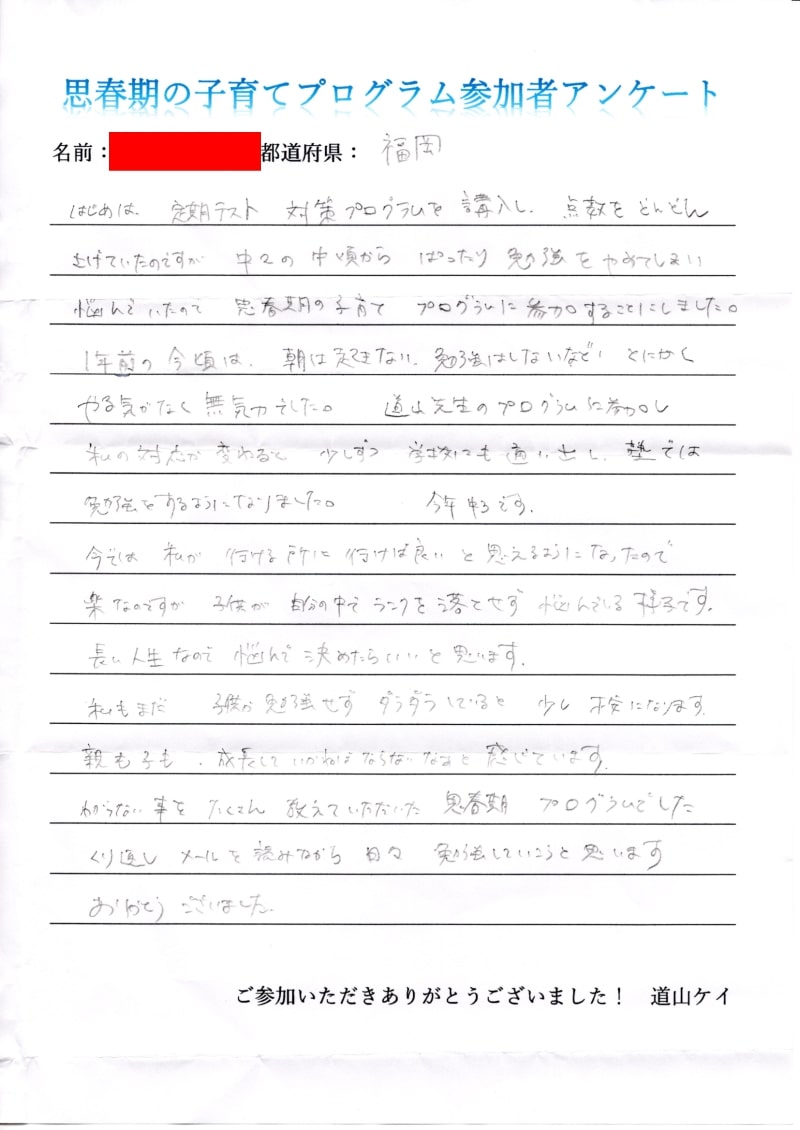 思春期の子育てプログラム参加者アンケート
名前： 都道府県： 福岡
はじめは、定期テスト 対策プログラムを 購入し、点数を どんどん
上げていたのですが 中2の 中頃から ぱったり 勉強を やめてしまい
悩んでいたので 思春期の子育て プログラムに参加することにしました。
1年前の今頃は、朝は起きない、勉強はしないなど、とにかく
やる気がなく 無気力でした。 道山先生のプログラムに参加し
私の対応が 変わると 少しずつ 学校にも通い出し、塾では
勉強をするようになりました。 今年中3です。
今では 私が 行ける所に行けば良いと思えるようになったので
楽なのですが 子供が 自分の中で ランクを落とせず 悩んでいる様子です。
長い人生なので 悩んで決めたらいいと思います。
私もまだ 子供が勉強せず ダラダラしていると 少し 不安になります。
親も子も、成長していかねばならないなぁと感じています。
わからない事を たくさん 教えていただいた 思春期 プログラムでした
くり返し メールを読みながら 日々 勉強していこうと思います
ありがとう ございました。
ご参加いただきありがとうございました！ 道山ケイ